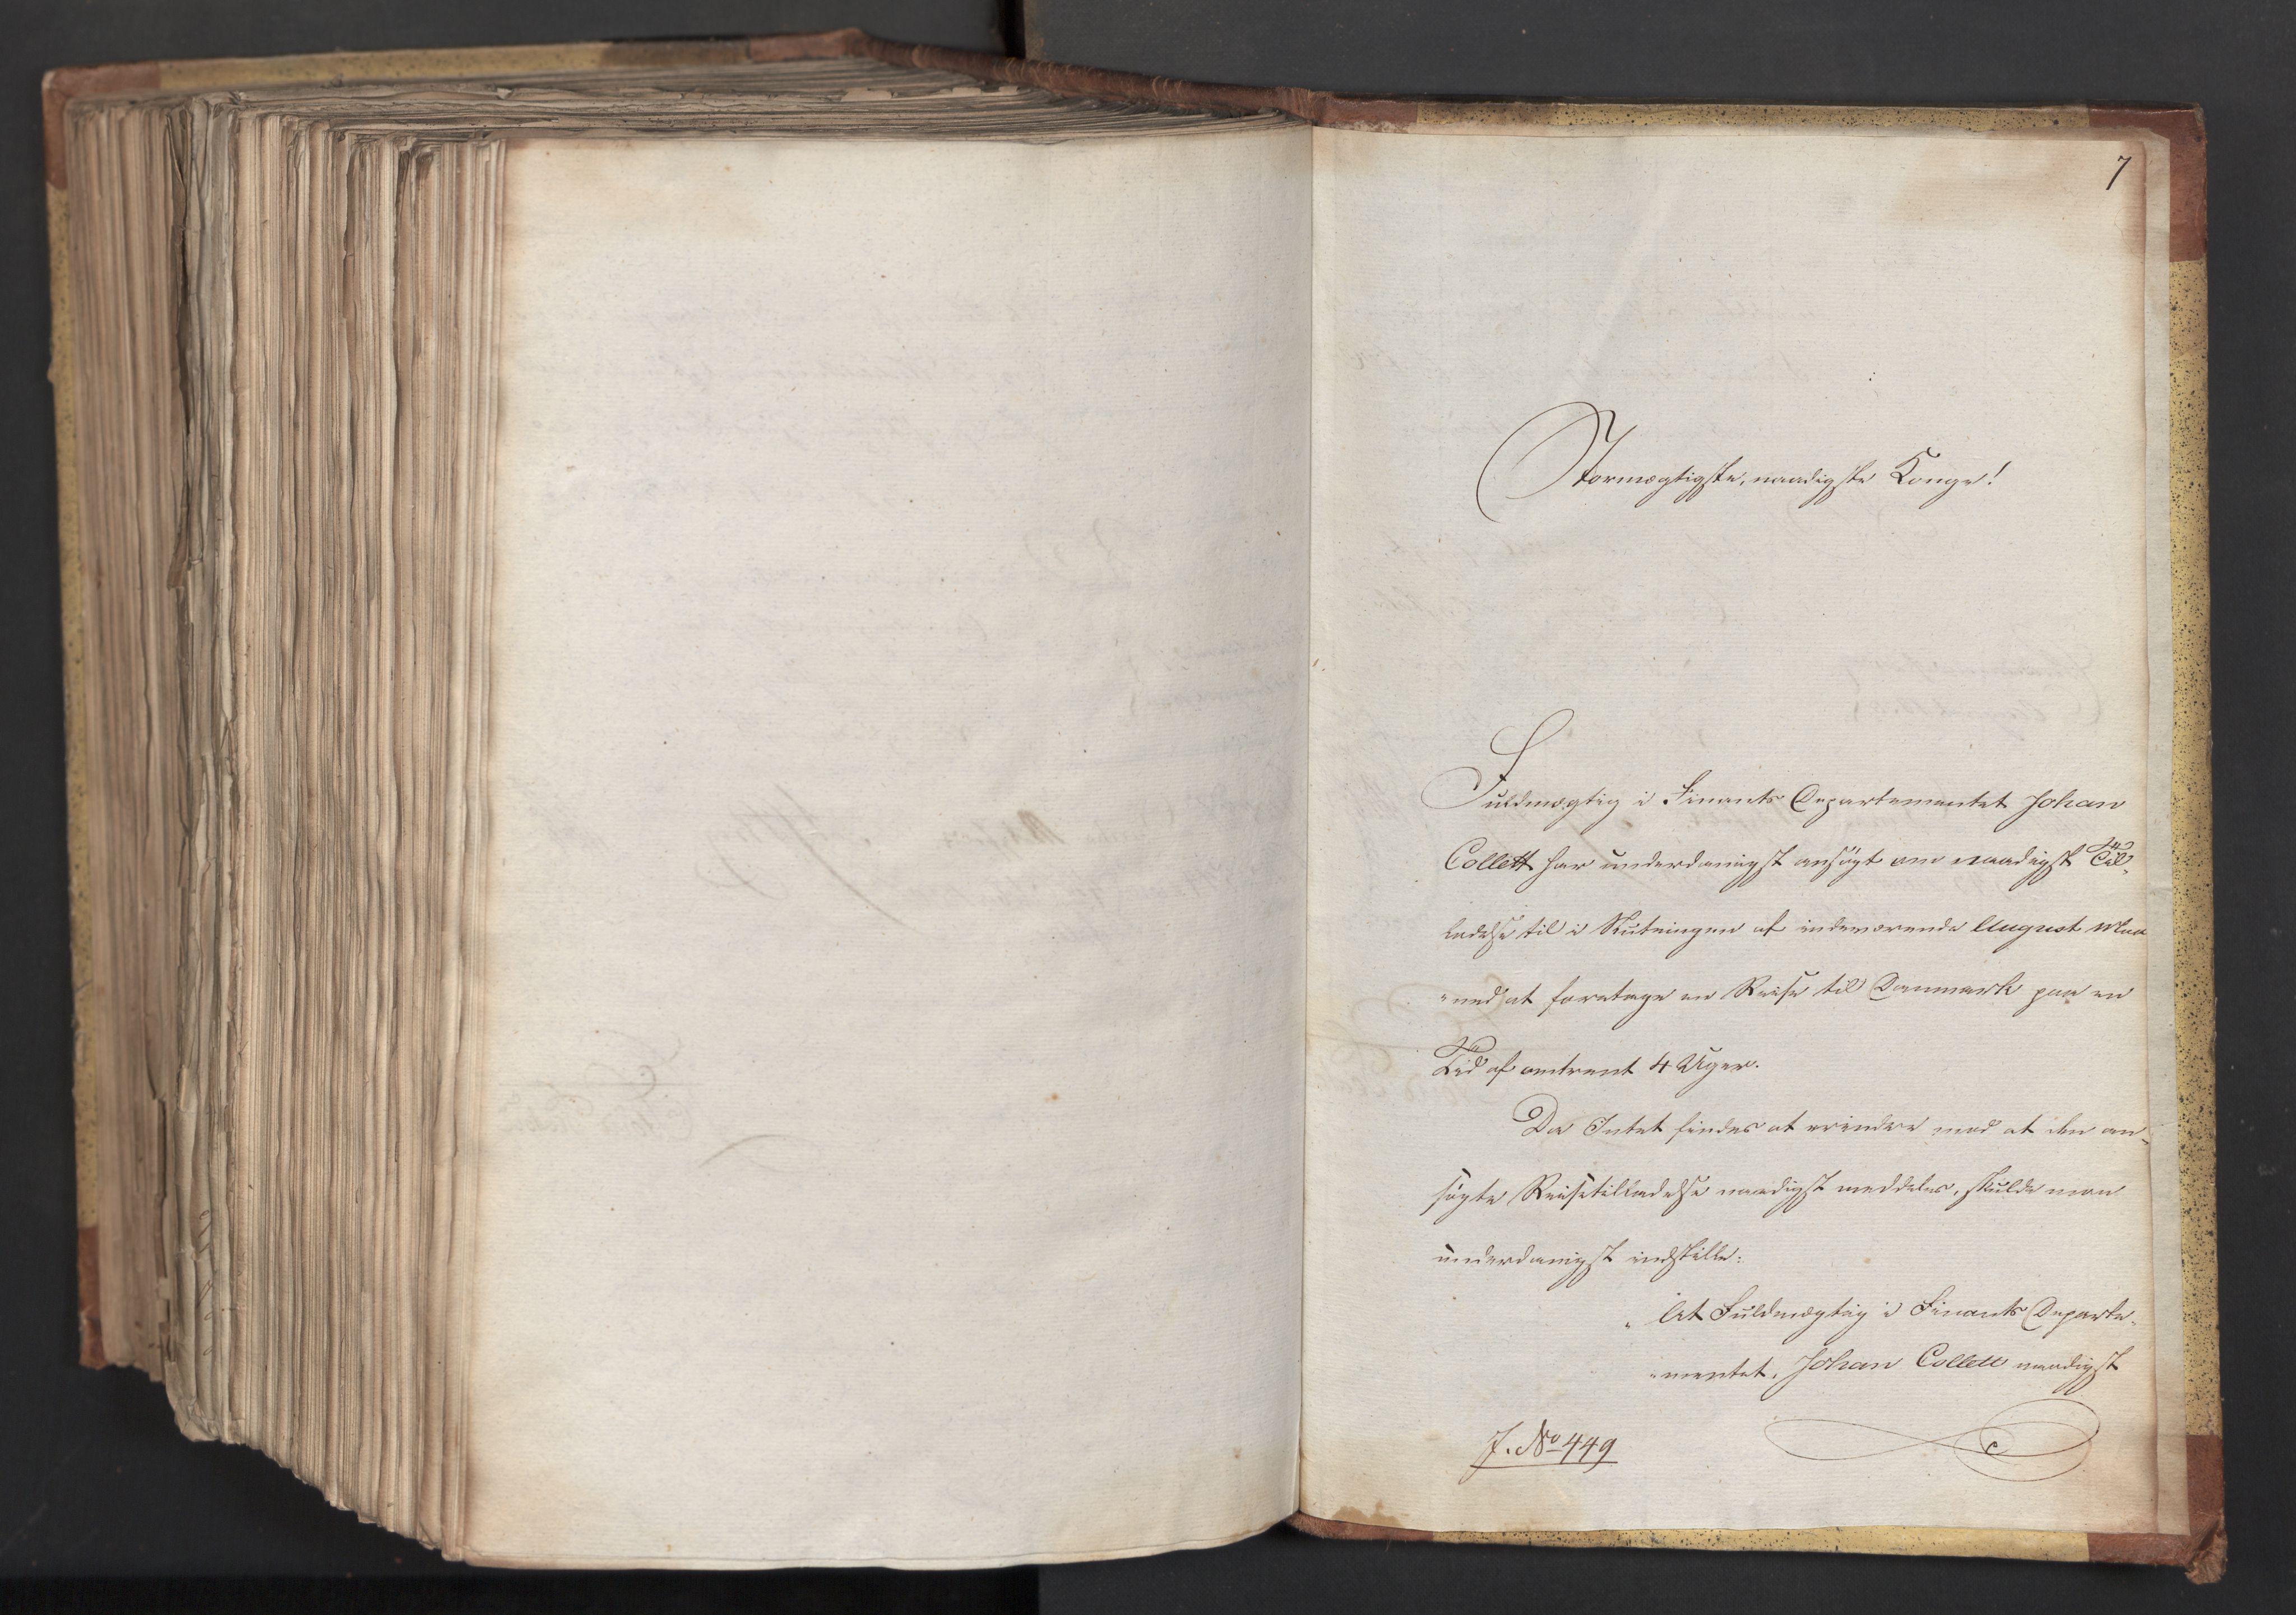 7
Stormægtigste, naadigste Konge!
Fuldmægtig i Finants Departementet Johan
Collett har underdanigst ansøgt om naadigst Til-
ladelse til i Slutningen af indeværende August Maa
"ned at foretage en Reise til Danmark paa en
Tid af omtrent 4 Uger.
Da Intet findes at erindre mod at den an-
søgte Reisetilladelse naadigst meddeles, skulde man
underdanigst indstille:
" At Fuldmægtig i Finants Departe-
"mentet, Johan Collett naadigst
J. No 449